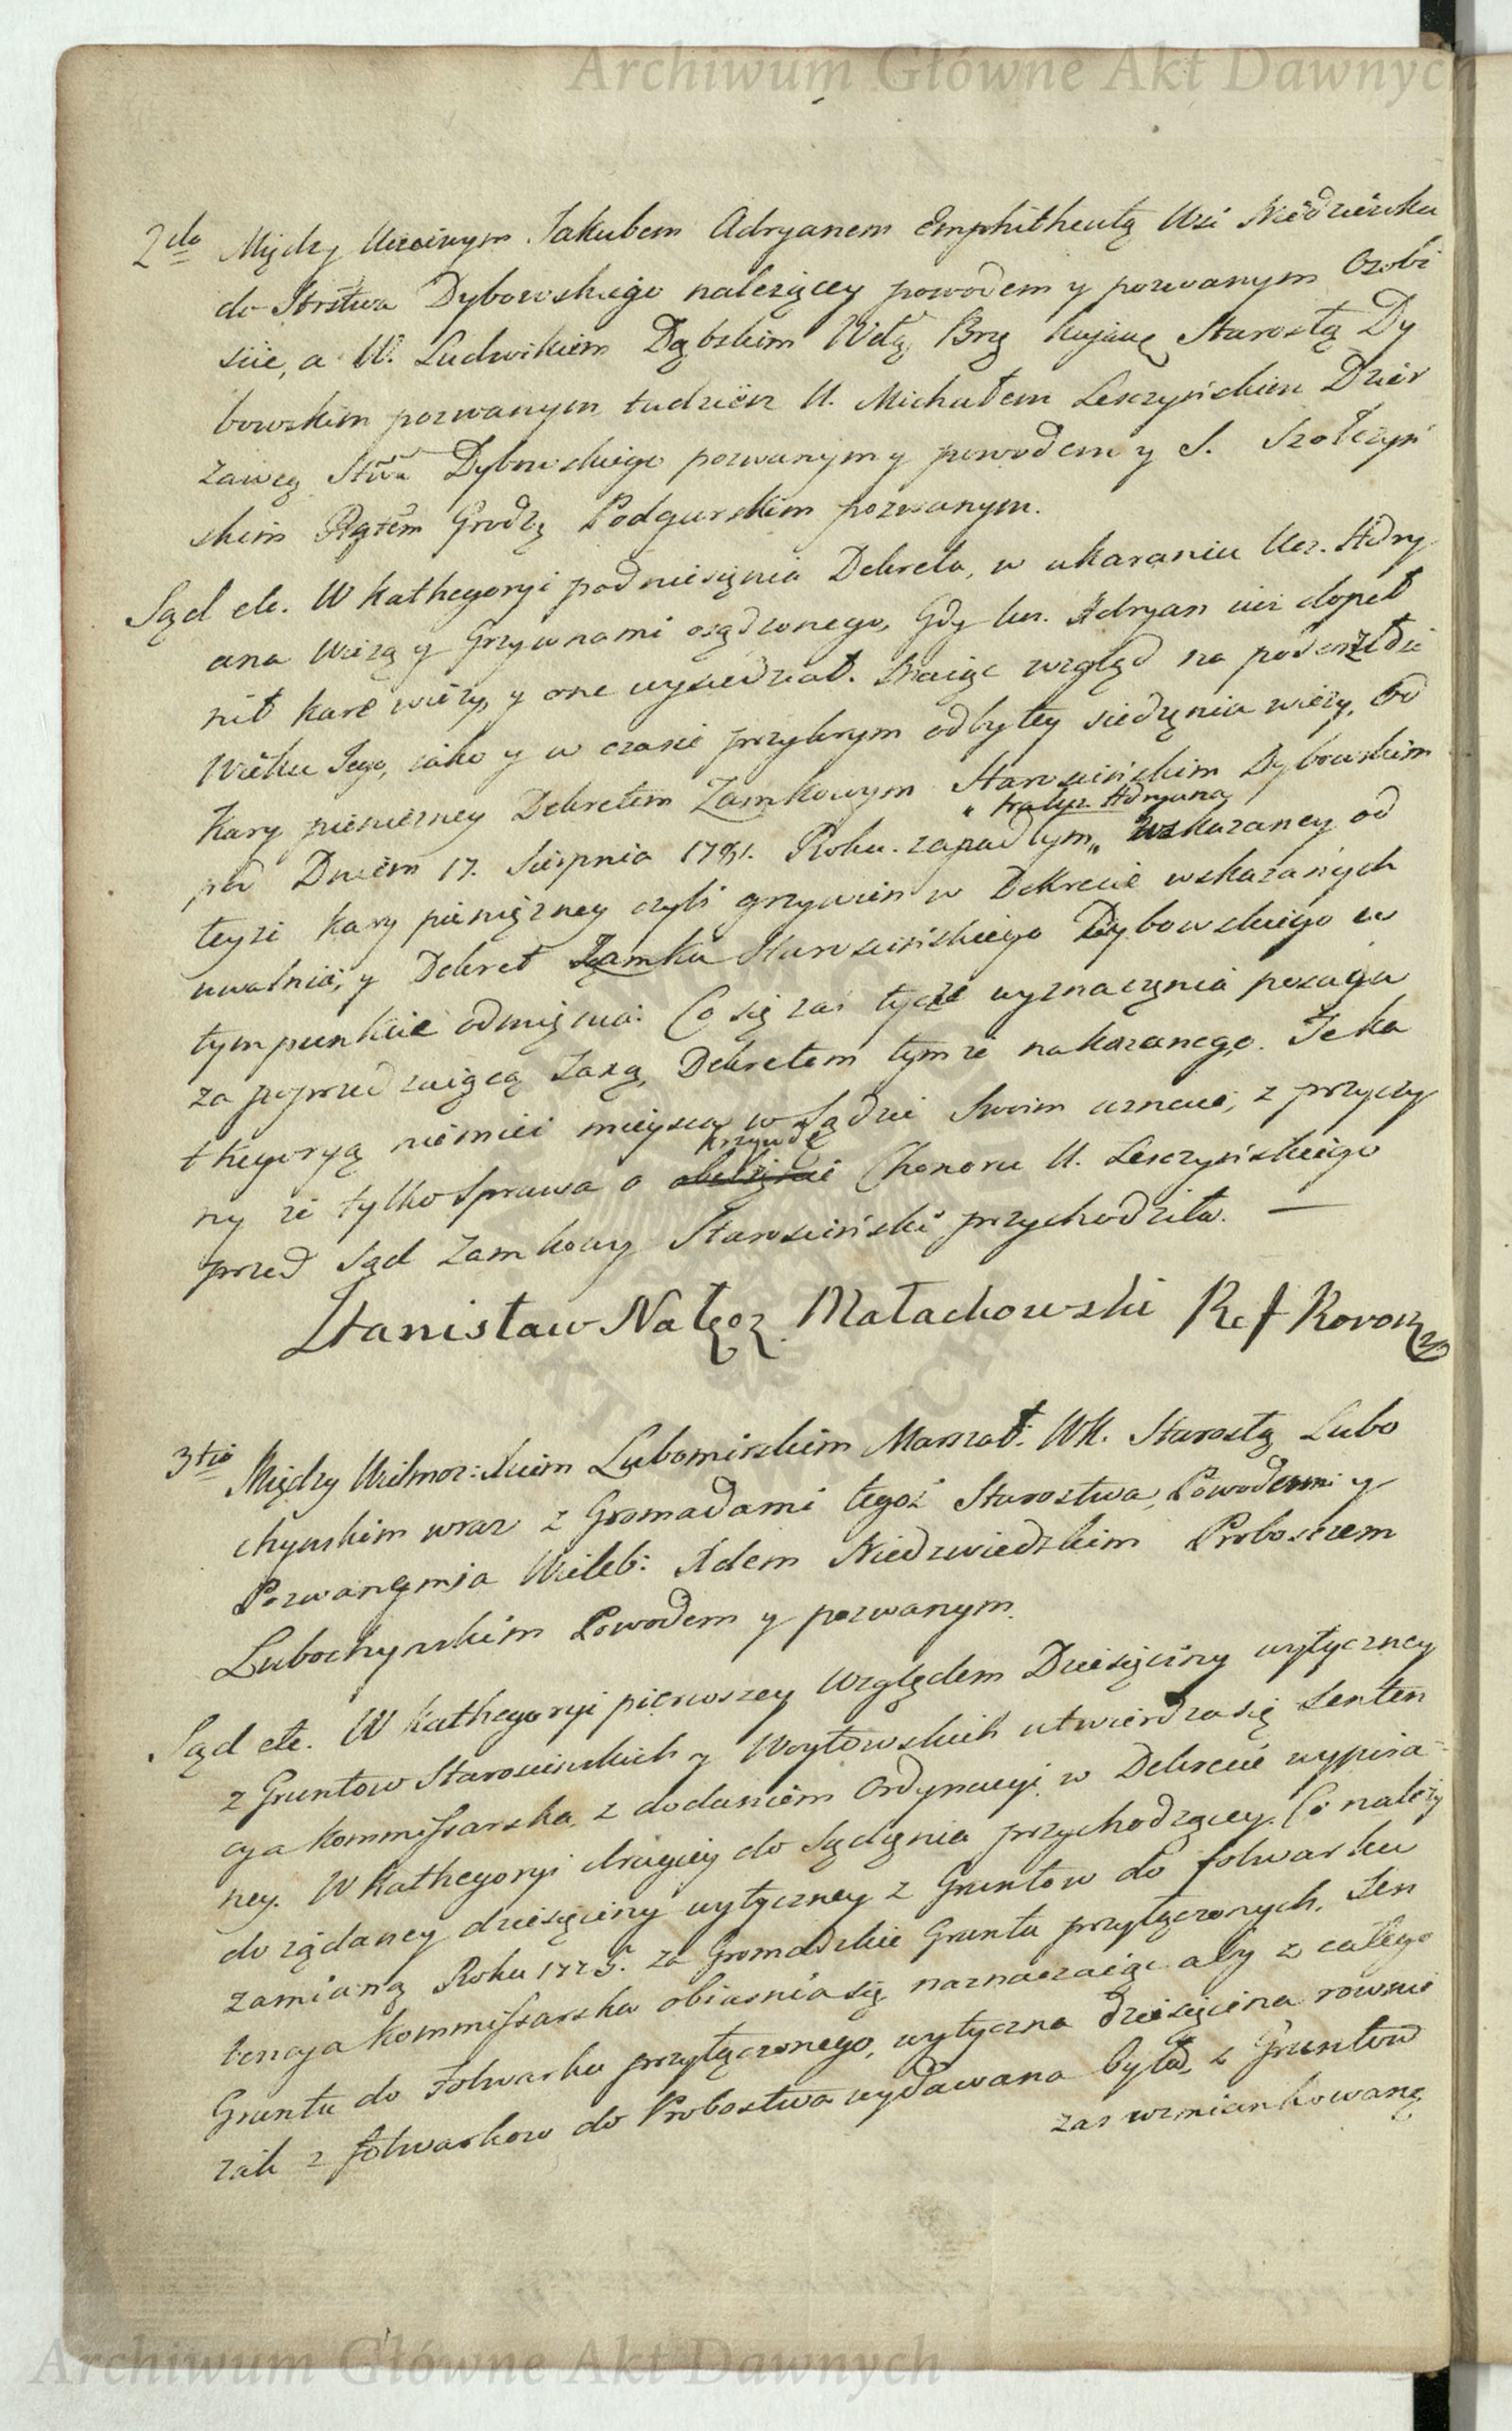 Archiwum Główne Akt Dawnych
2do Między Uczciwym Jakubem Adryanem Emphitheutą Wsi
do Strstwa Dybowskiego należącey powodem y pozwanym Osobi
ście, a W. Ludwikiem Dąbskim Wdą Brz Kujaws Starostą Dy
bowskim pozwanym tudzież U. Michałem Leszczyńskim Dzier
zawcą Sttwa Dybowskiego pozwanym y powodem y S. Szołczyń
skim Rgtem Grodz Podgurskim pozwanym.
Sąd etc. W kathegoryi podniesienia Dekretu, w ukaraniu Ucz. Adry
ana Wieżą y Grzywnami osądzonego, Gdy Ucz. Adryan iuż dopeł
nił karę wieży, y one wysiedział. Maiąc wzgląd na podeszłość
Wieku Jego, iako y w czasie przykrym odbyłey siedzenia wieży, Od
Kary pieniężney Dekretem Zamkowym Starościńskim Dybowskim
" na Ucz. Adryana
pod Dniem 17. Sierpnia 1781. Roku zapadłym „ wskazaney od
teyże kary pieniężney czyli grzywien w Dekrecie wskazanych
uwalnia, y Dekret Zamku Starościńskiego Dybowskiego w
tym punkcie odmienia. Co się zaś tycze wyznaczenia posagu
za poprzedzaiącą Taxą, Dekretem tymże nakazanego. Te ka
thegoryą niemieć mieysca w Sądzie Swoim uznaie, z przyczy
krzywdę
ny że tylko Sprawa o Chonoru U. Leszczyńskiego
przed Sąd Zamkowy Starościński przychodziła. —
Stanisław Nałęcz Małachowski Ref Koronny
3tio Między Wielmoż: Xciem Lubomirskim Marszał: WK. Starostą Lubo
chyńskim wraz z Gromadami tegoż Starostwa, Powodem y
Pozwanym a Wieleb: Xdem Niedzwiedzkim Proboszczem
Lubochyńskim Powodem y pozwanym.
Sąd etc. W kathegoryi pierwszey Względem Dziesięciny wytyczney
z Gruntow Starościńskich y Woytowskich utwierdza się Senten
cya kommissarska, z dodaniem Ordynacyi w Dekrecie wypisa-
ney. W kathegoryi drugiey do Sądzenia przychodzącey. Co należy
do żądaney dziesięciny wytyczney z Gruntow do folwarku
zamianą Roku 1775. za Gromadzkie Grunta przyłączonych. Sen
tencya kommissarska obiasnia się naznaczaiąc aby z całego
Gruntu do Folwarku przyłączonego, wytyczna dziesięcina rownie
iak z folwarkow do Probostwa wydawana była, z Gruntow
zas wzmiankowaną
Archiwum Główne Akt Dawnych